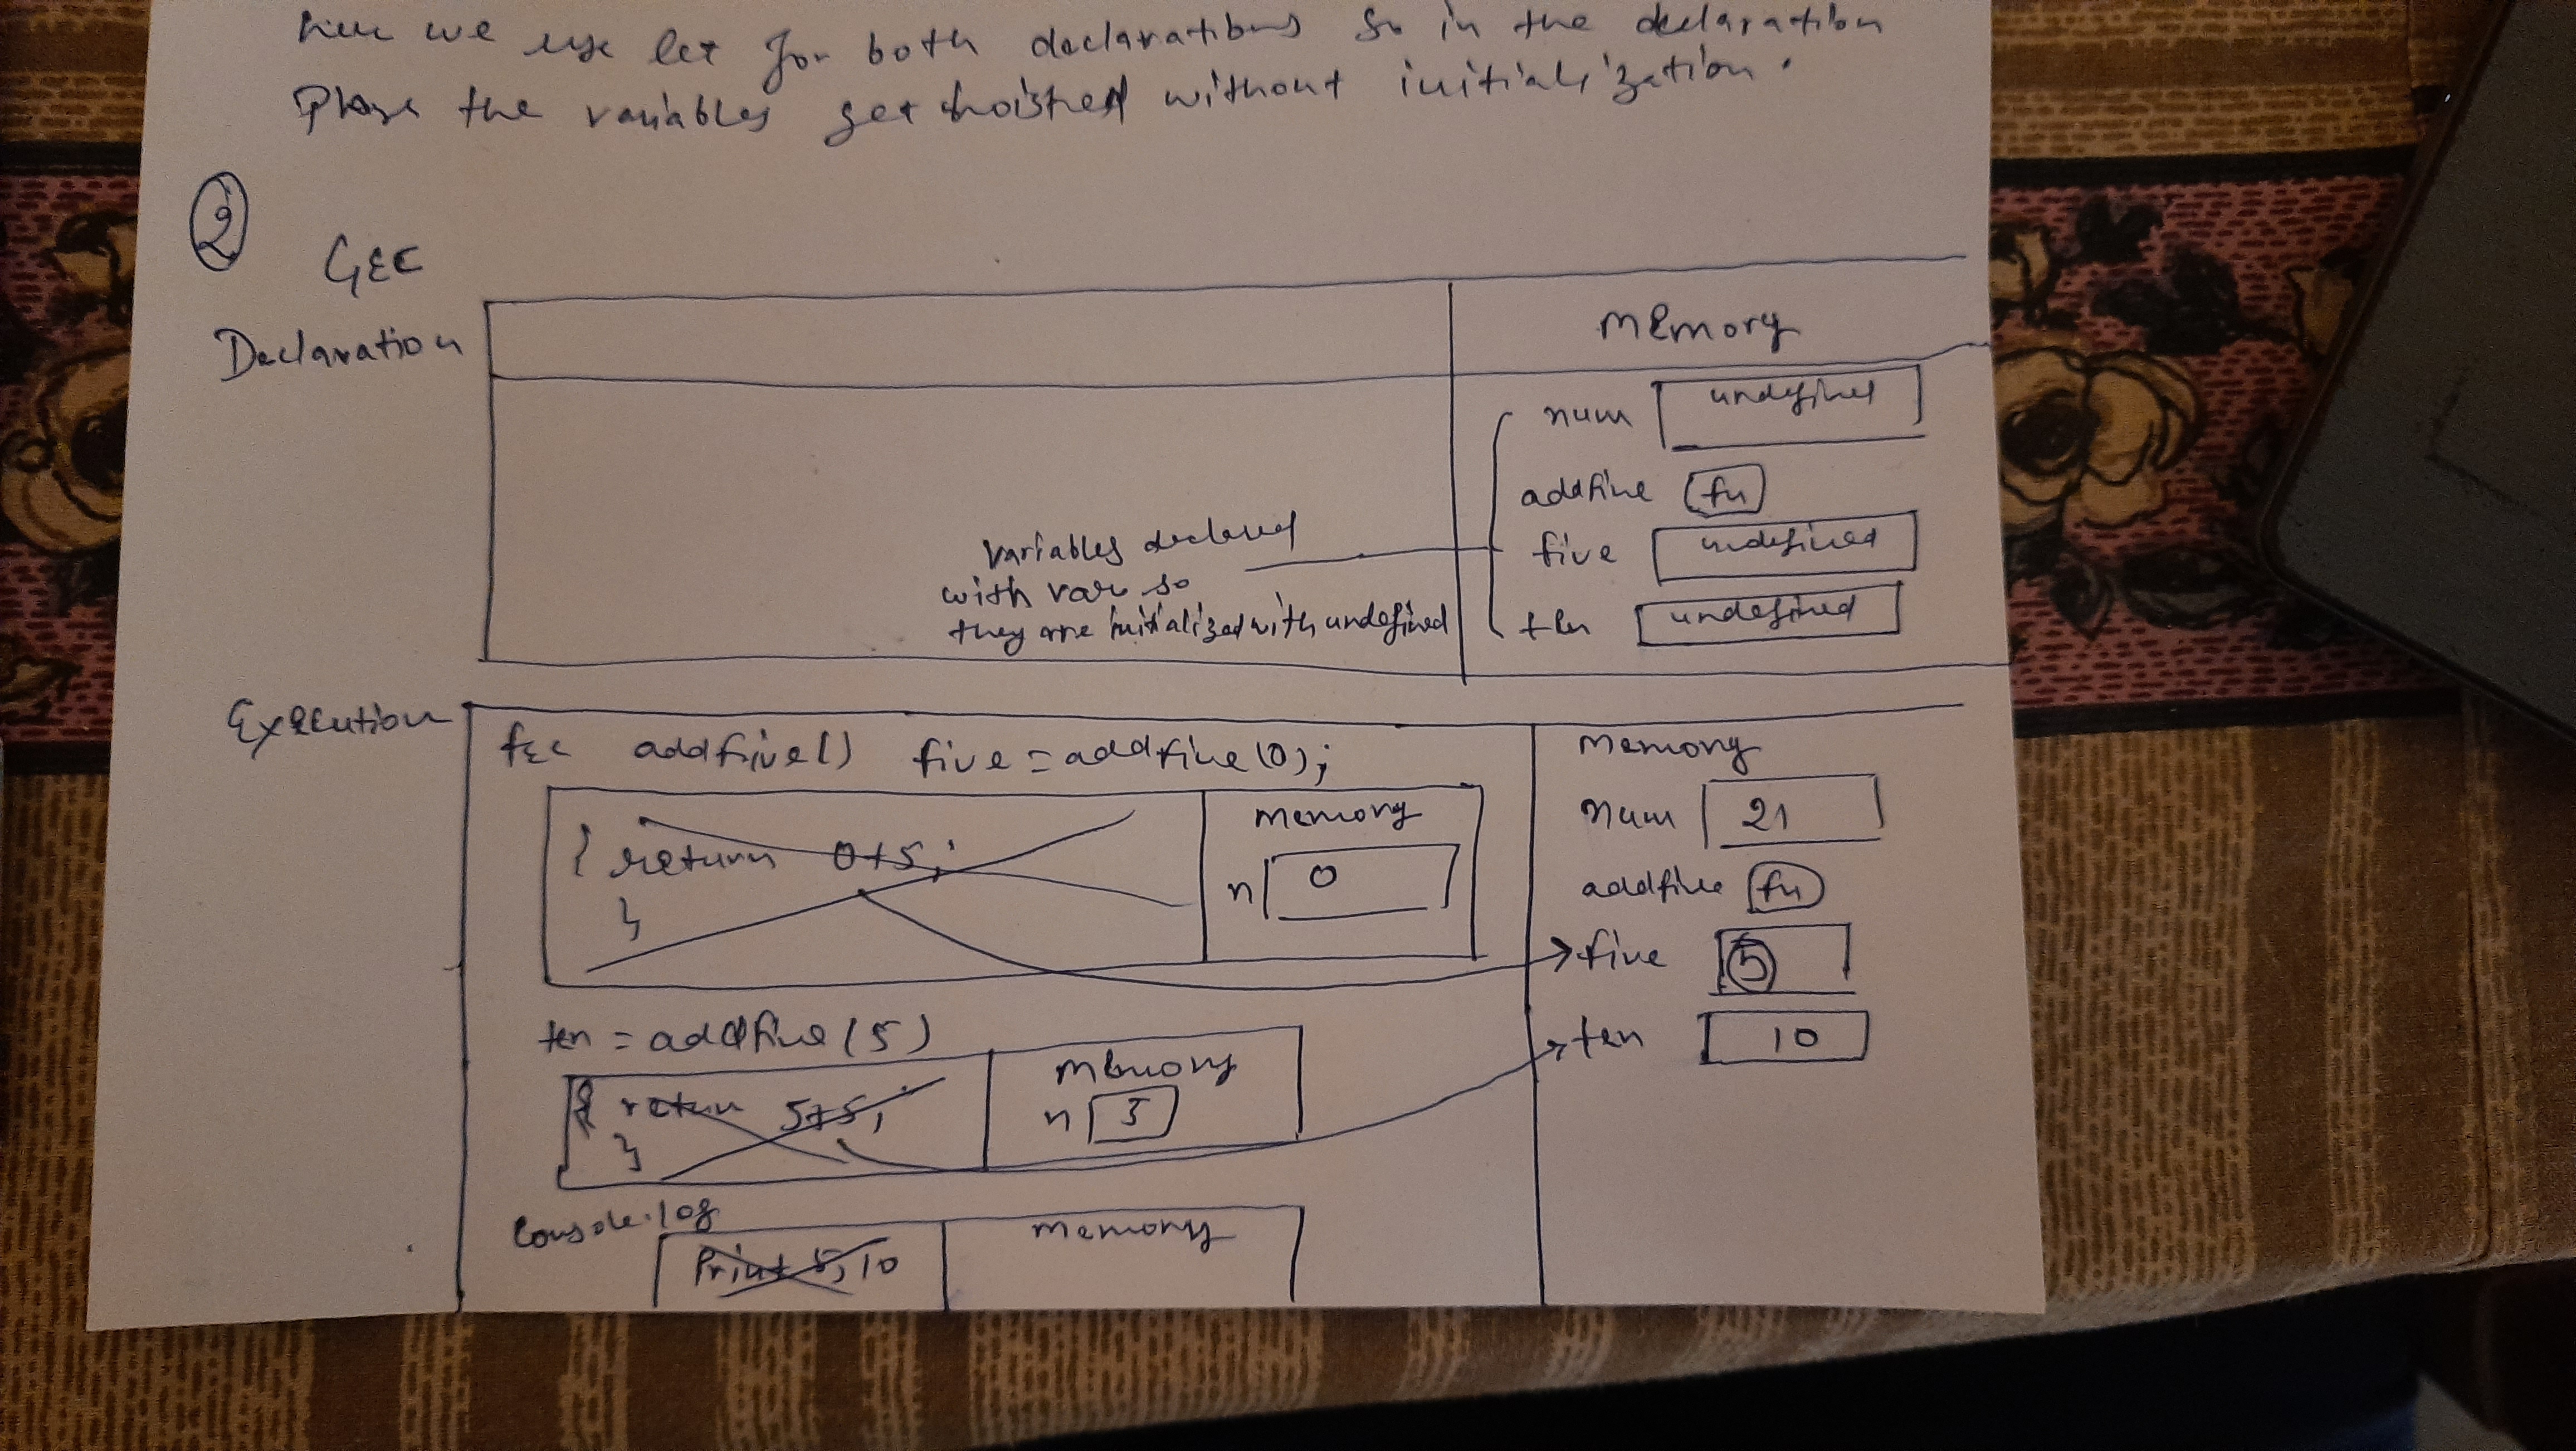 here we use let for both declarations so in the declaration
phase the variables get hoisted without initialization.
② GEC
Declaration
memory
num undefined
addfive fn
five undefined
ten undefined
variables declared
with var so
they are initialized with undefined
Execution
fec addfive() five = addfive(0);
memory
{ return 0+5;
}
n 0
ten = addfive(5)
memory
{ return 5+5;
}
n 5
console.log
memory
Print 5,10
memory
num 21
addfive fn
five 5
ten 10